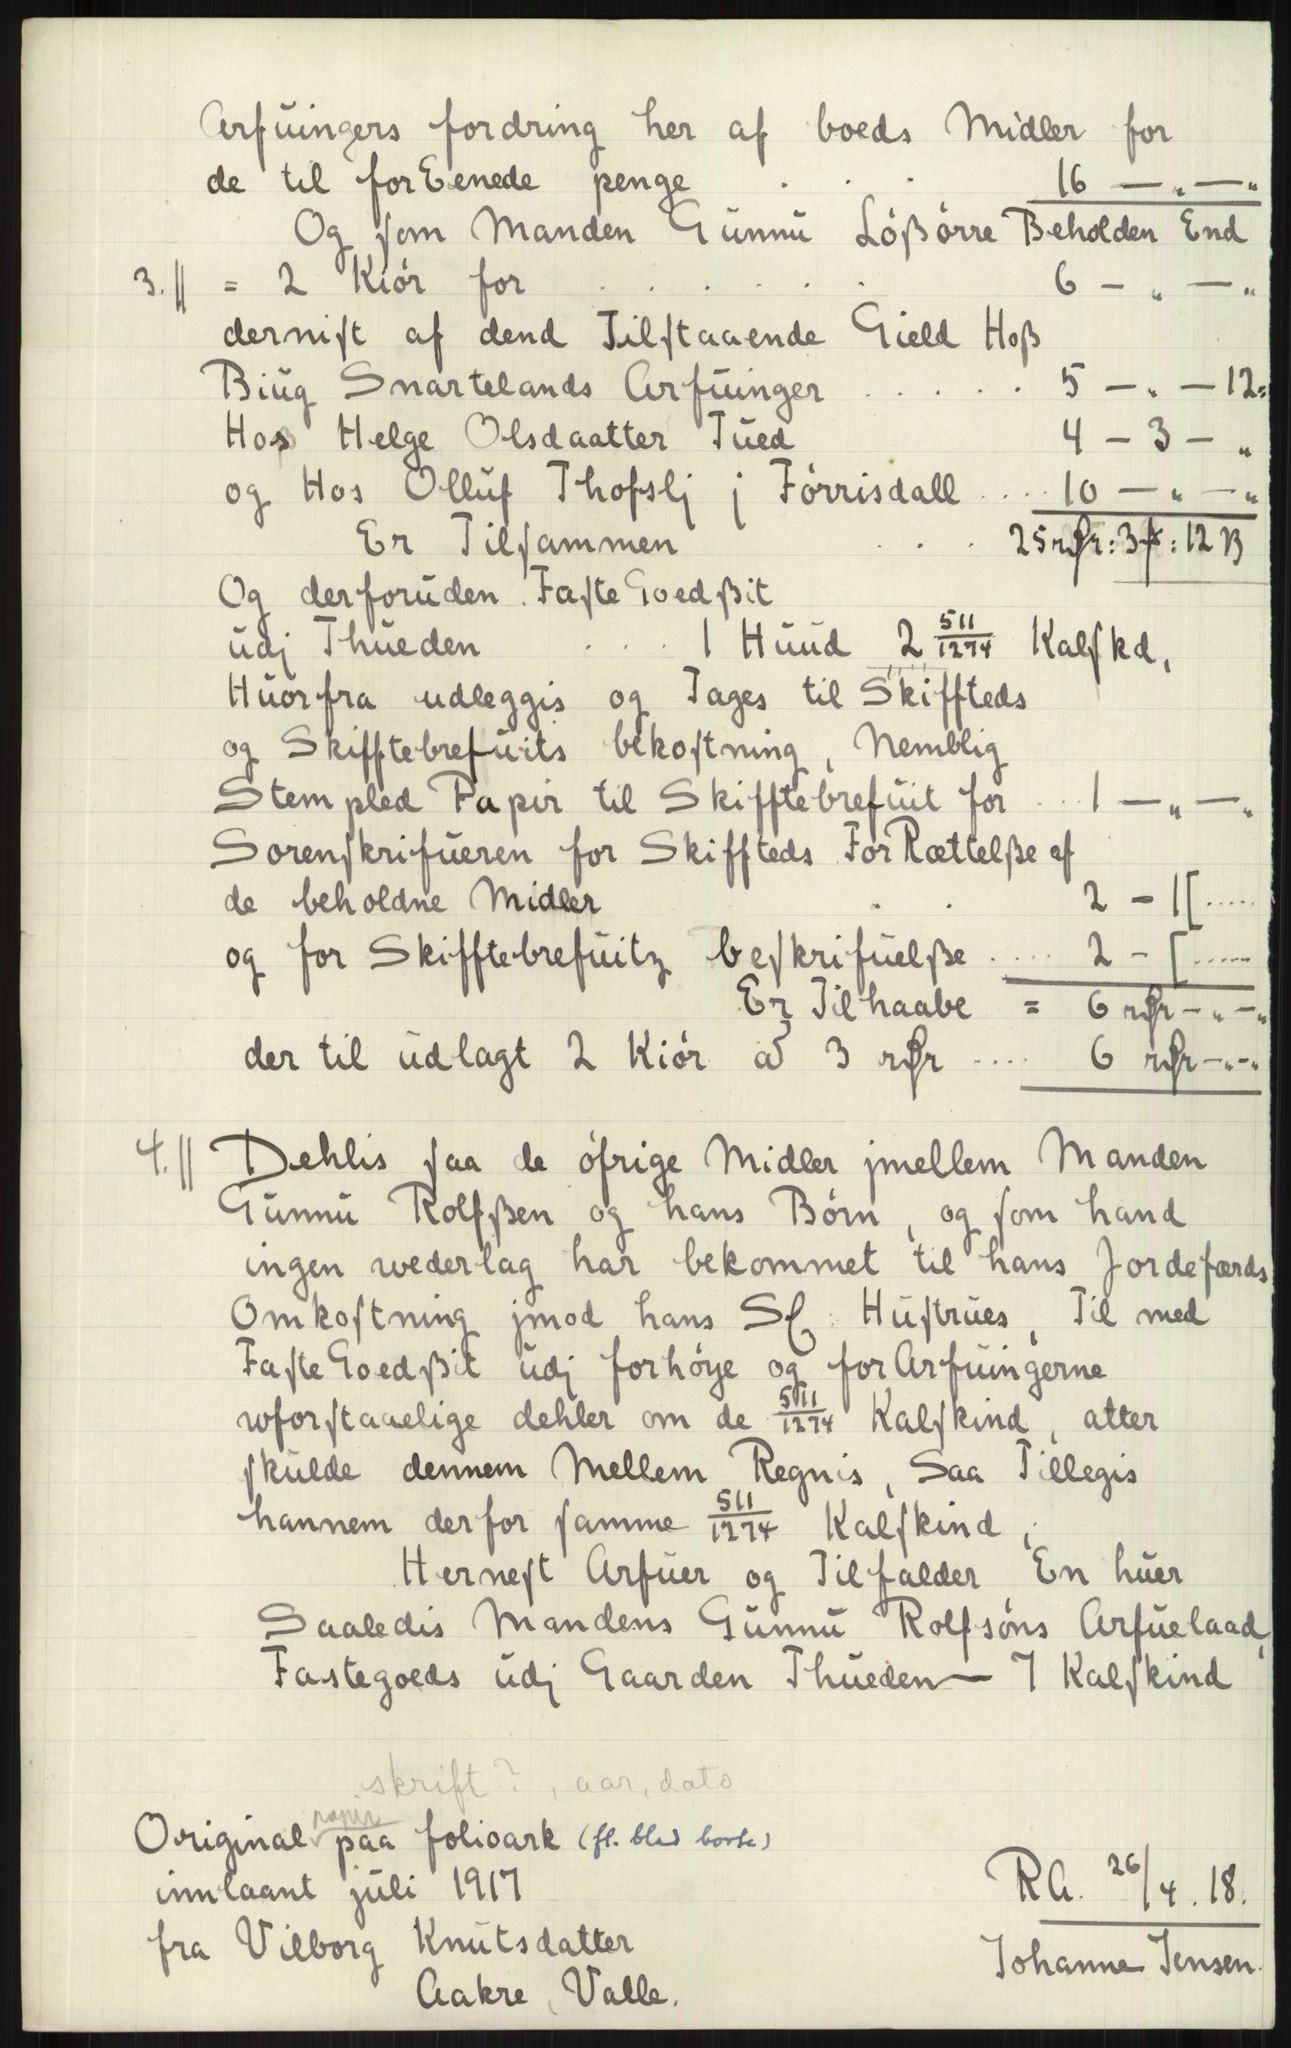 Arfuingers fordring her af boeds Midler for
de til forEenede penge . . . 16 — „ — „
Og som Manden Gunnu Lößörre Beholden End
3. || = 2 Kiör for . . . . . . 6 — „ — „
dernist af dend Tilstaaende Gield Hoß
Biug Snartelands Arfuinger . . . . . 5 — „ — 12 =
Hos Helge Olsdaatter Tued 4 — 3 — „
og Hos Olluf Thofslj j Förrisdall .... 10 — „ — „
Er Tilsammen . . . 25 rdr : 3 : 12 ß
Og derforuden FasteGoedßit
udj Thueden . . . 1 Huud 2 511/1274 Kalfskd,
Huorfra udleggis og Tages til Skiffteds
og Skifftebrefuits bekostning, Nemblig
Stempled Papir til Skifftebrefuit for .. 1 — „ — „
Sorenskrifueren for Skiffteds ForRættelße af
de beholdne Midler . . 2 — 1[.....
og for Skifftebrefuitz beskrifuelße .... 2 — [.....
Er Tilhaabe = 6 rdr — „ — „
der til udlagt 2 Kiör a 3 rdr .... 6 rdr — „ — „
4. || Dehlis saa de öfrige Midler jmellem Manden
Gunnu Rolfßen og hans Börn, og som hand
ingen wederlag har bekommet til hans Jordefærds
Omkostning jmod hans Sl: Hustrues, Til med
FasteGoedßit udj forhöye og for Arfuingerne
wforstaaelige dehler om de 511/1274 Kalfskind, atter
skulde dennem Mellem Regnis, Saa Tillegis
hannem derfor samme 511/1274 Kalfskind;
Hernest Arfuer og Tilfalder En huer
Saaledis Mandens Gunnu Rolfsöns Arfuelaad,
Fastegoeds udj Gaarden Thueden — 7 Kalfskind
skrift?, aar, dato
papir
Original paa folioark (fl. blad borte)
innlaant juli 1917
fra Vilborg Knutsdatter
Aakre, Valle.
RA. 26/4. 18.
Johanne Jensen.